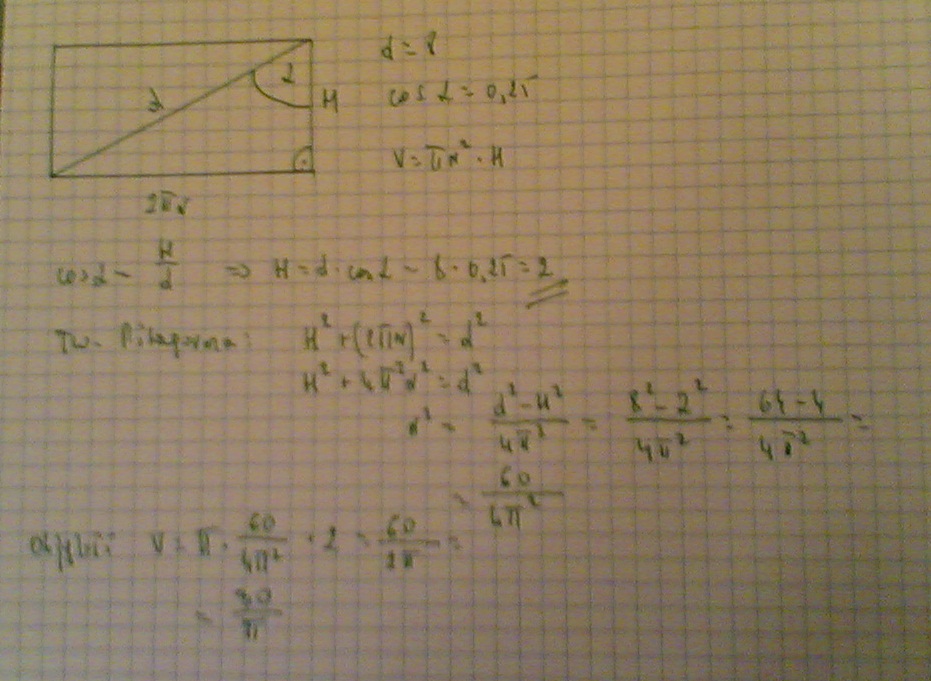 d = 8
α
d
H
cos α = 0,25
V = πr² · H
2πr
cos α = H/d ⇒ H = d · cos α = 8 · 0,25 = 2
Tw. Pitagorasa: H² + (2πr)² = d²
H² + 4π²r² = d²
r² = (d² - H²)/(4π²) = (8² - 2²)/(4π²) = (64 - 4)/(4π²) =
= 60/(4π²)
V = π · 60/(4π²) · 2 = 60/(2π) =
= 30/π